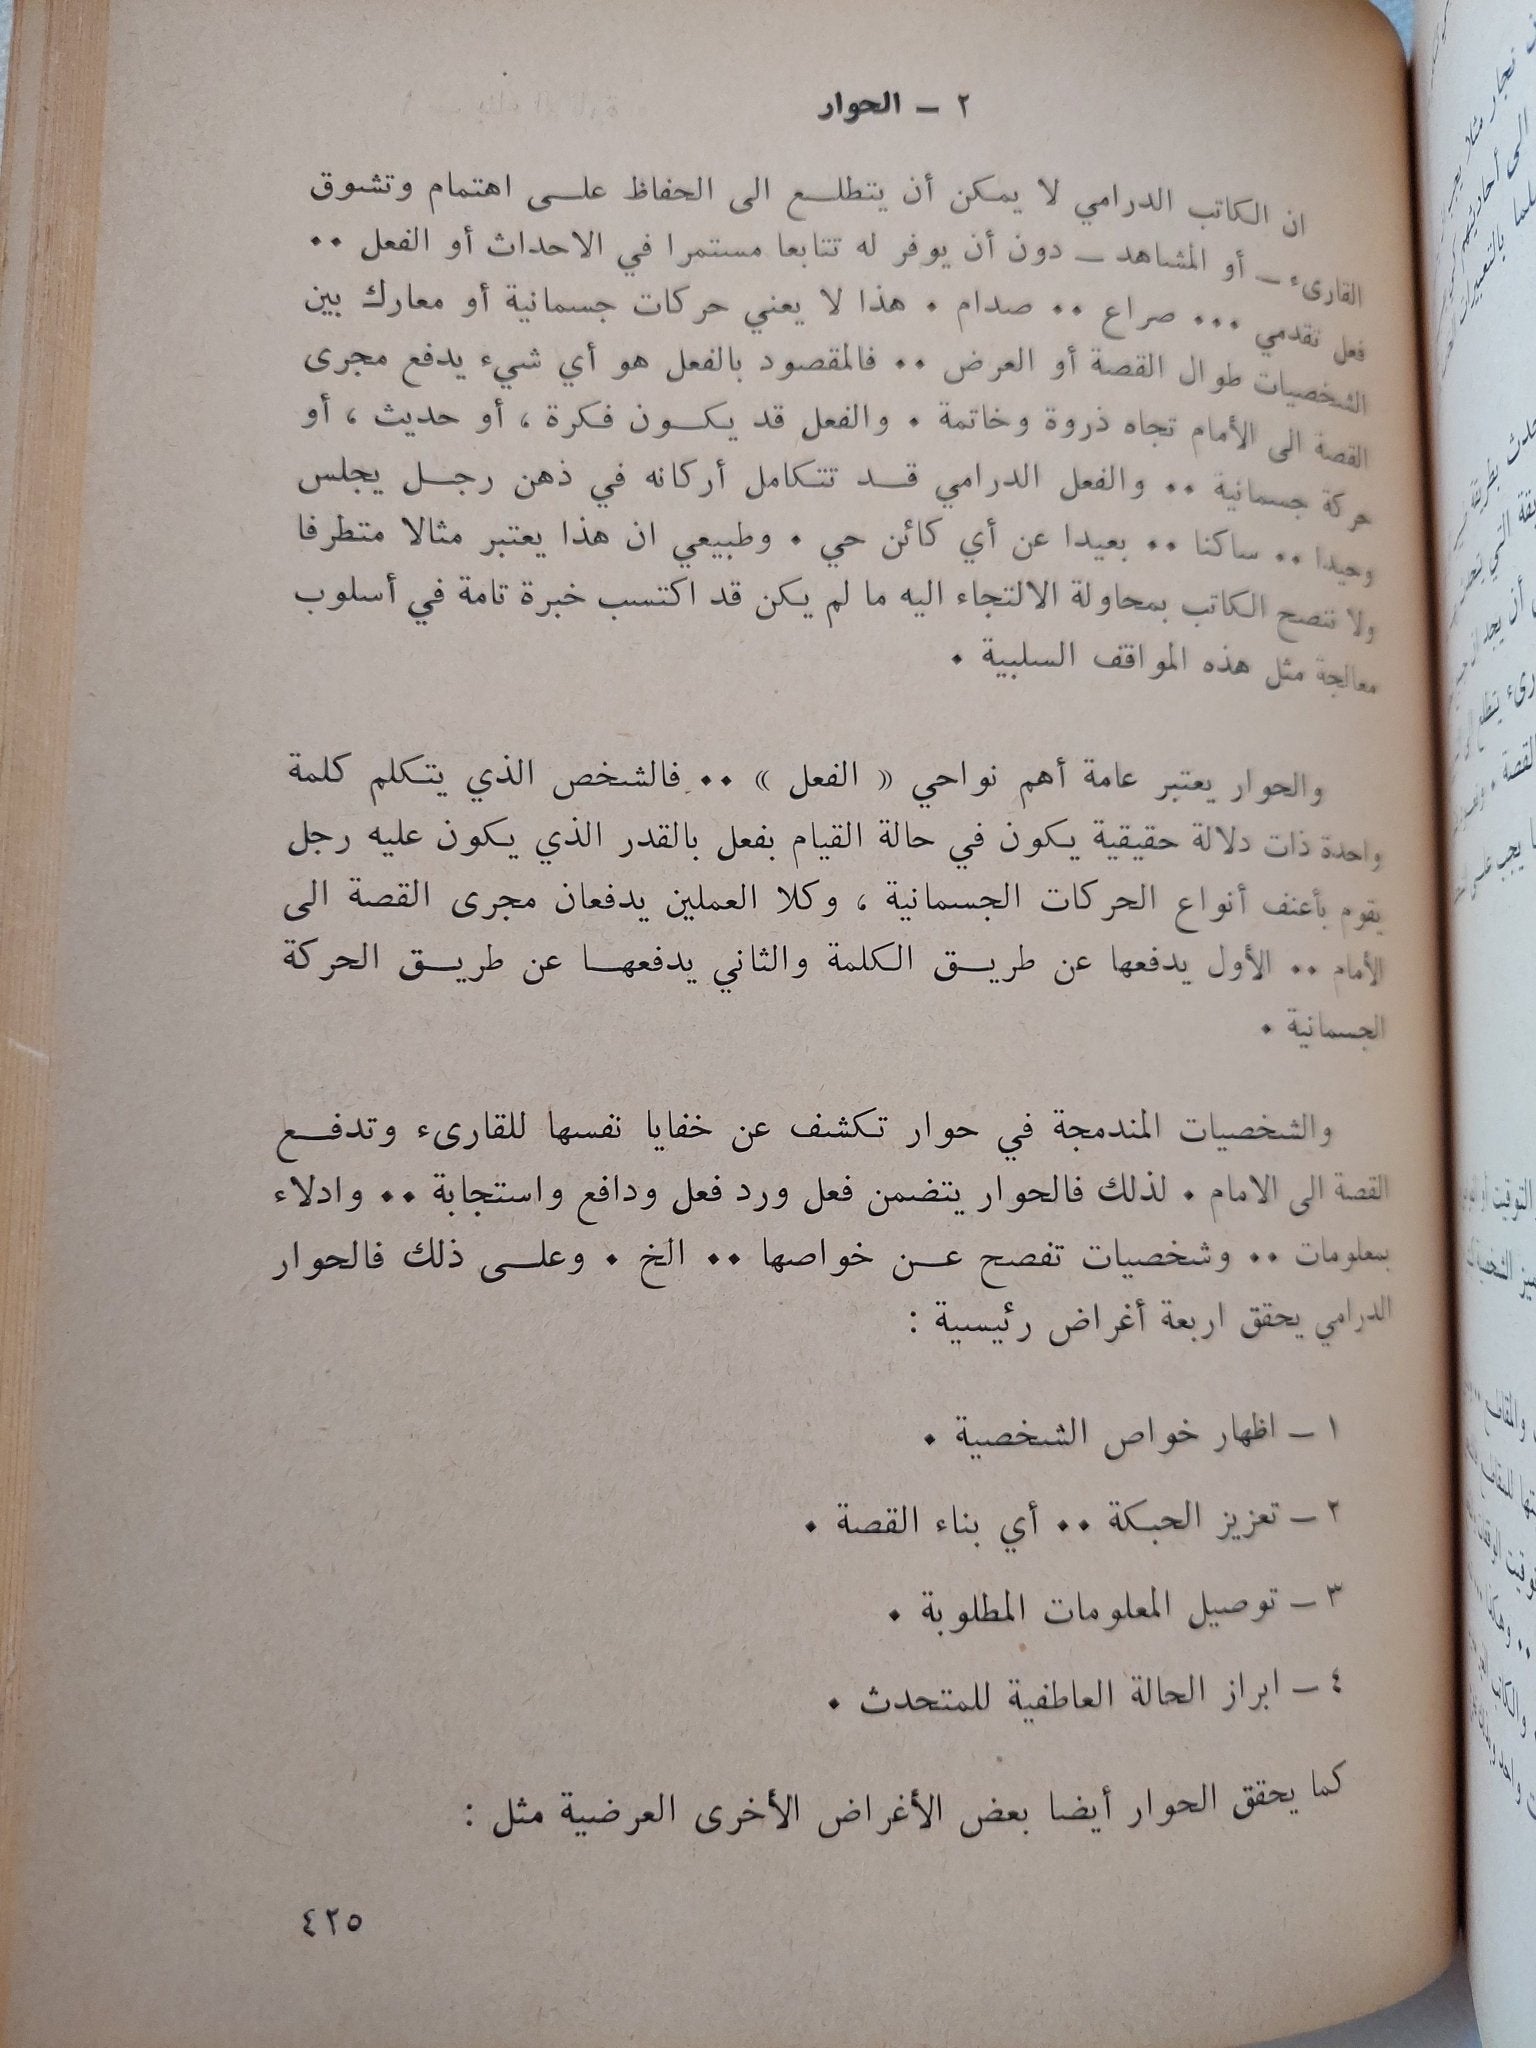 ٢ ــ الحوار
ان الكاتب الدرامي لا يمكن أن يتطلــع الى الحفاظ علــى اهتمام وتشوق
القارىء ــ أو المشاهد ــ دون أن يوفر له تتابعا مستمرا في الاحداث أو الفعل ٠٠
فعل تقدمي ٠٠٠ صراع ٠٠ صدام ٠ هذا لا يعني حركات جسمانية أو معارك بين
الشخصيات طوال القصة أو العرض ٠٠ فالمقصود بالفعل هو أي شيء يدفع مجرى
القصة الى الأمام تجاه ذروة وخاتمة ٠ والفعل قد يكــون فكرة ، أو حديث ، أو
حركة جسمانية ٠٠ والفعل الدرامي قــد تتكامل أركانه في ذهن رجــل يجلس
وحيدا ٠٠ ساكنا ٠٠ بعيدا عن أي كائن حي ٠ وطبيعي ان هذا يعتبر مثالا متطرفا
ولا ننصح الكاتب بمحاولة الالتجاء اليه ما لم يكن قد اكتسب خبرة تامة في أسلوب
معالجة مثل هذه المواقف السلبية ٠
والحوار يعتبر عامة أهم نواحي « الفعل » ٠٠ فالشخص الذي يتكلم كلمة
واحدة ذات دلالة حقيقية يكون في حالة القيام بفعل بالقدر الذي يكون عليه رجل
يقوم بأعنف أنواع الحركات الجسمانية ، وكلا العملين يدفعان مجرى القصة الى
الأمام ٠٠ الأول يدفعها عن طريــق الكلمة والثاني يدفعهــا عن طريــق الحركة
الجسمانية ٠
والشخصيات المندمجة في حوار تكشف عن خفايا نفسها للقارىء وتدفــع
القصة الى الامام ٠ لذلك فالحوار يتضمن فعل ورد فعل ودافع واستجابة ٠٠ وادلاء
بمعلومات ٠٠ وشخصيات تفصح عــن خواصها ٠٠ الخ ٠ وعلــى ذلك فالحوار
الدرامي يحقق اربعة أغراض رئيسية :
١ ــ اظهار خواص الشخصية ٠
٢ ــ تعزيز الحبكة ٠٠ أي بناء القصة ٠
٣ ــ توصيل المعلومات المطلوبة ٠
٤ ــ ابراز الحالة العاطفية للمتحدث ٠
كما يحقق الحوار أيضا بعض الأغراض الأخرى العرضية مثل :
٤٢٥